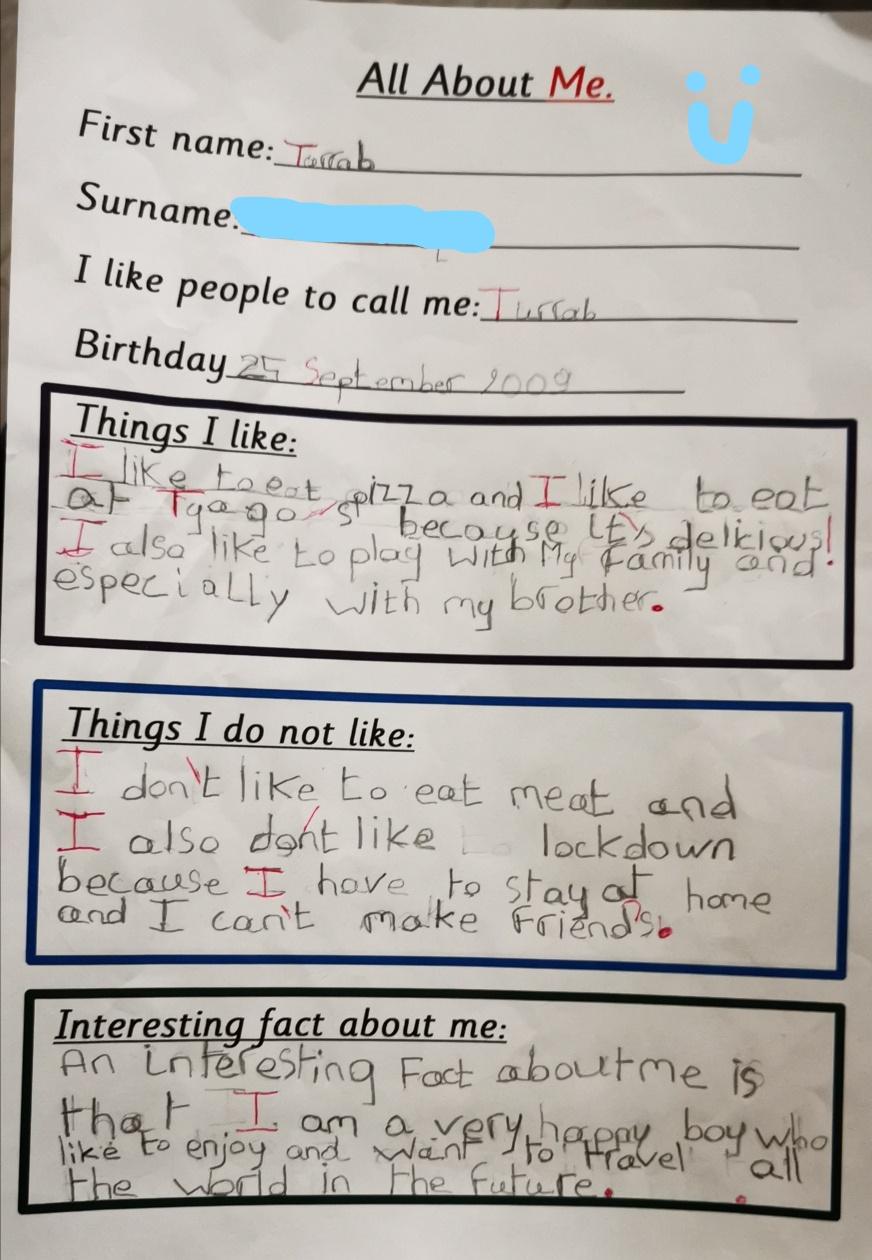 All About Me.
First name: Turrab
Surname:
I like people to call me: Turrab
Birthday 25 September 2009
Things I like:
I like to eat pizza and I like to eat
at Tgago's because it's delicious!
I also like to play with My family and
especially with my brother.
Things I do not like:
I don't like to eat meat and
I also don't like lockdown
because I have to stay at home
and I can't make Friends.
Interesting fact about me:
An interesting Fact about me is
that I am a very happy boy who
like to enjoy and want to travel all
the world in the future.